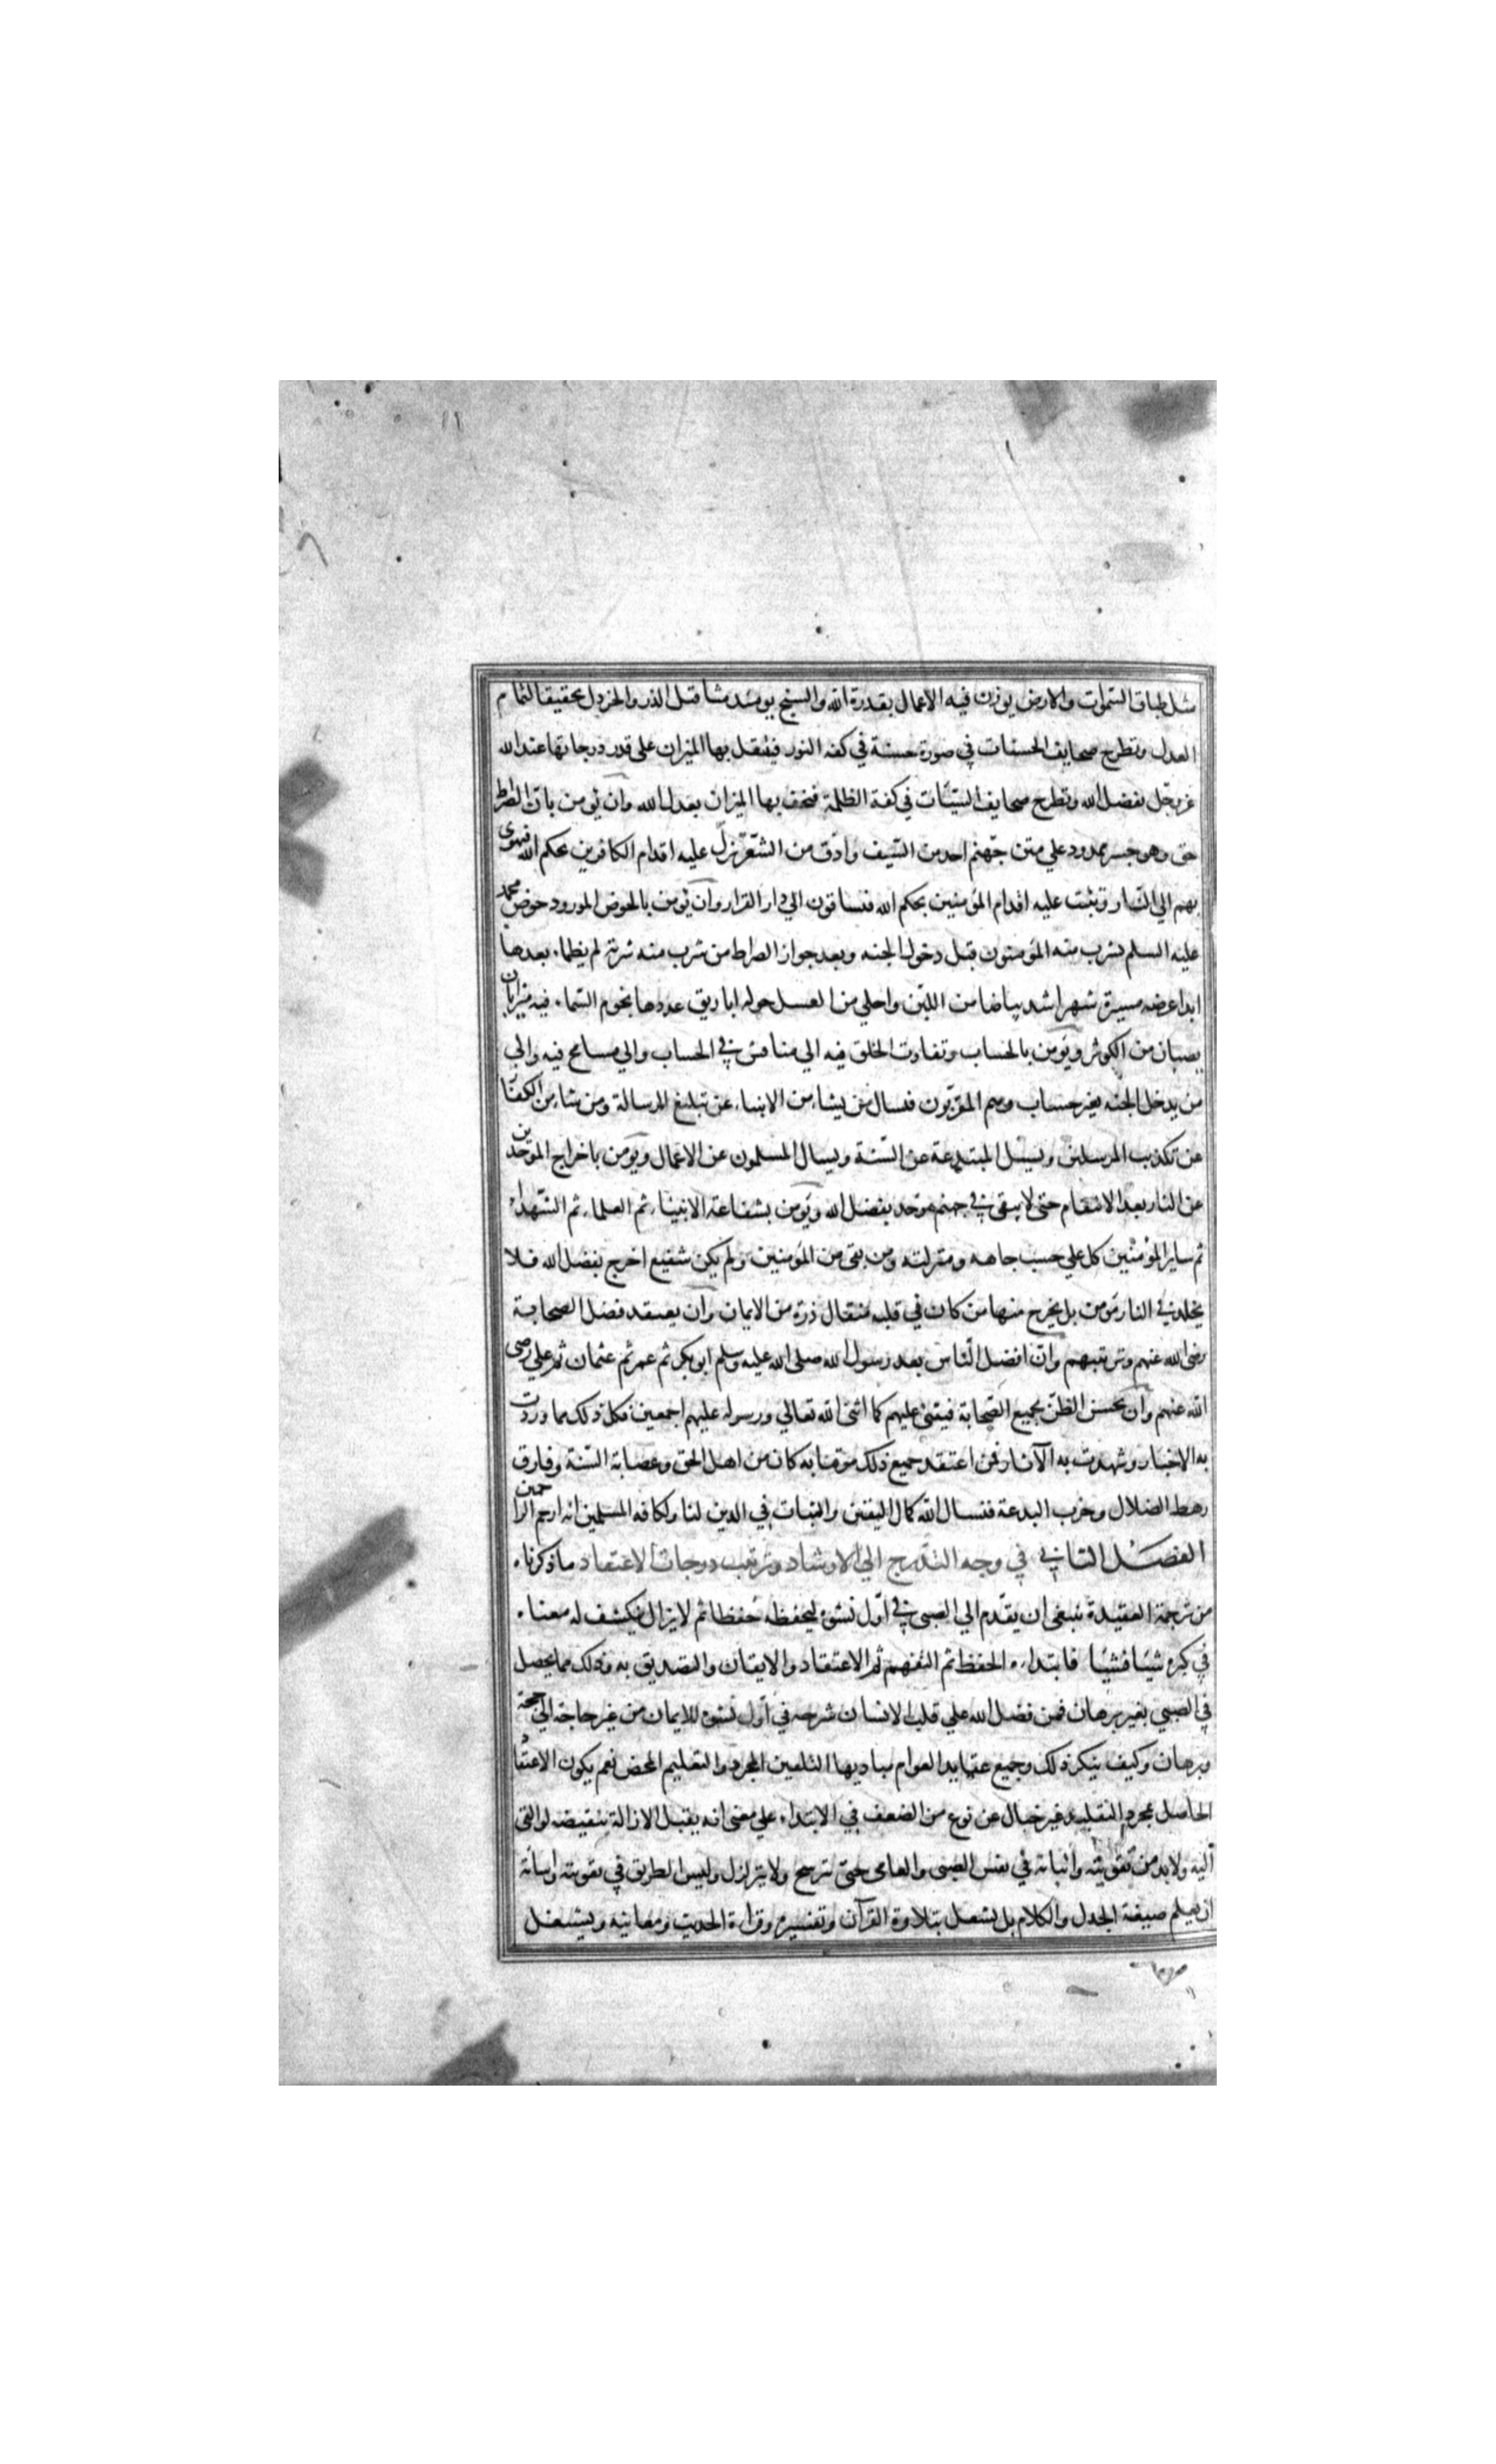 مثل طباق السموات والارض يوزن فيه الاعمال بقدرة الله والسنج يومئذ مثاقيل الذر والخردل تحقيقا لتمام
العدل وتطرح صحايف الحسنات في صورة حسنة في كفه النور فيثقل بها الميزان على قدر درجاتها عند الله
عز وجل بفضل الله وتطرح صحايف السيئات في كفة الظلمة فيخف بها الميزان بعدل الله وان يؤمن بان الصراط
حق وهو جسر ممدود علي متن جهنم احد من السيف وادق من الشعر تزل عليه اقدام الكافرين بحكم الله فيهوى
بهم الي النار وتثبت عليه اقدام المؤمنين بحكم الله فيساقون الي دار القرار وان يؤمن بالحوض المورود حوض محمد
عليه السلم يشرب منه المؤمنون قبل دخول الجنه وبعد جواز الصراط من شرب منه شربة لم يظماء بعدها
ابدا عرضه مسيرة شهر اشد بياضا من اللبن واحلي من العسل حوله اباريق عددها نجوم السماء فيه ميزابان
يصبان من الكوثر ويؤمن بالحساب وتفاوت الخلق فيه الي مناقش في الحساب والي مسامح فيه والي
من يدخل الجنه بغير حساب وهم المقربون فيسال من يشاء من الانبياء عن تبليغ الرسالة ومن شاء من الكفا
عن تكذيب المرسلين ويسئل المبتدعة عن السنة ويسال المسلمون عن الاعمال ويؤمن باخراج الموحدين
عن النار بعد الانتقام حتى لا يبقى في جهنم موحد بفضل الله ويؤمن بشفاعة الانبياء ثم العلماء ثم الشهداء
ثم ساير المؤمنين كل علي حسب جاهه ومنزلته ومن بقى من المؤمنين ولم يكن شفيع اخرج بفضل الله فلا
يخلد في النار مؤمن بل يخرج منها من كان في قلبه مثقال ذرة من الايمان وان يعتقد فضل الصحابة
رضى الله عنهم وترتيبهم وان افضل الناس بعد رسول الله صلى الله عليه وسلم ابو بكر ثم عمر ثم عثمان ثم علي رضى
الله عنهم وان يحسن الظن بجميع الصحابة فيثنى عليهم كما اثنى الله تعالي ورسوله عليهم اجمعين فكل ذلك مما وردت
به الاخبار وشهدت به الآثار فمن اعتقد جميع ذلك موقنا به كان من اهل الحق وعصابة السنة وفارق
رهط الضلال وحزب البدعة فنسال الله كمال اليقين والثبات في الدين لنا ولكافه المسلمين انه ارحم الراحمين
الفصل الثاني في وجه التدرج الي الارشاد وترتيب درجات الاعتقاد ما ذكرناه
من ترجمة العقيدة ينبغى ان يقدم الي الصبى في اول نشوه ليحفظه حفظا ثم لا يزال ينكشف له معناه
في كبره شيئا فشيئا فابتداءه الحفظ ثم التفهم ثم الاعتقاد والايقان والتصديق به وذلك مما يحصل
في الصبي بغير برهان فمن فضل الله علي قلب الانسان شرحه في اول نشوه للايمان من غير حاجة الي حجة
وبرهان وكيف ينكر ذلك وجميع عقايد العوام مباديها التلقين المجرد والتعليم المحض نعم يكون الاعتقا
الحاصل بمجرد التقليد غير خال عن نوع من الضعف في الابتداء علي معنى انه يقبل الازالة بنقيضه لو القى
اليه ولا بد من تقويته واثباته في نفس الصبى والعامى حتى ترسخ ولا يتزلزل وليس الطريق في تقويته واثباته
ان يعلم صيغة الجدل والكلام بل يشتغل بتلاوة القرآن وتفسيره وقراءة الحديث ومعانيه ويشتغل